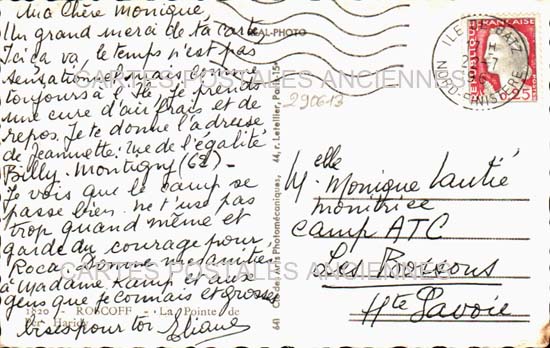 Ma Chère Monique
Un grand merci de ta carte
Ici ça va, le temps n'est pas
sensationnel mais comme
toujours à l'Ile je prends
une cure d'air frais et de
repos. Je te donne l'adresse
de Jeannette: rue de l'égalité
Billy-Montigny (62) -
Je vois que le camp se
passe bien. ne t'use pas
trop quand même et
garde du courage pour
Roca. Donne mes amitiés
à Madame Kamp et aux
gens que je connais et grosses
bises pour toi Eliane
1820 - ROSCOFF - La Pointe de
REAL-PHOTO
641 Cie des Arts Photomécaniques, 44, r. Letellier, Paris-15e
290613
ILE DE BATZ
NORD-FINISTERE
REPUBLIQUE FRANÇAISE
0,25
Melle Monique
monitrice
Camp ATC
Les Bossons
Hte Savoie
CARTES POSTALES ANCIENNES
CARTES POSTALES ANCIENNES